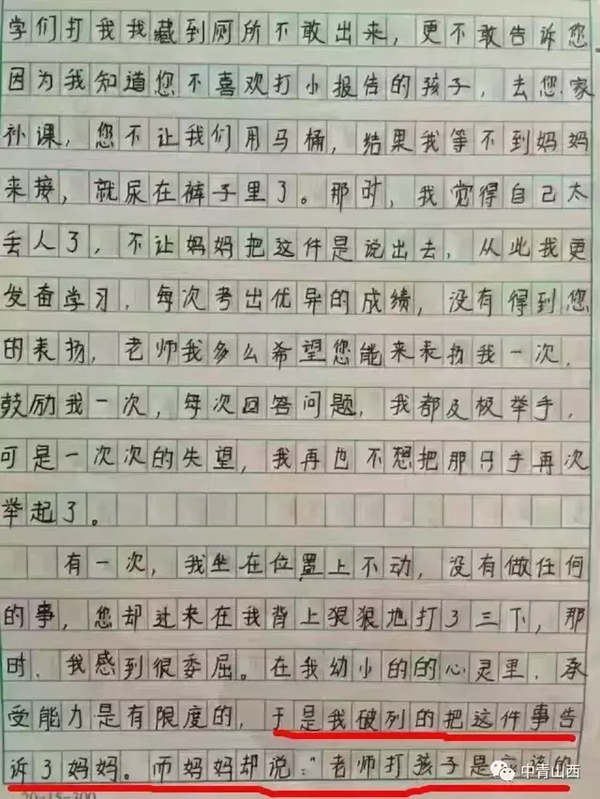 学们打我我藏到厕所不敢出来，更不敢告诉您。
因为我知道您不喜欢打小报告的孩子，去您家
补课，您不让我们用马桶，结果我等不到妈妈
来接，就尿在裤子里了。那时，我觉得自己太
丢人了，不让妈妈把这件是说出去，从此我更
发奋学习，每次考出优异的成绩，没有得到您
的表扬，老师我多么希望您能来表扬我一次，
鼓励我一次，每次回答问题，我都及极举手，
可是一次次的失望，我再也不想把那只手再次
举起了。
有一次，我坐在位置上不动，没有做任何
的事，您却过来在我背上狠狠地打了三下，那
时，我感到很委屈。在我幼小的的心灵里，承
受能力是有限度的，于是我破列的把这件事告
诉了妈妈。而妈妈却说："老师打孩子是应该的
20×15=300
中青山西